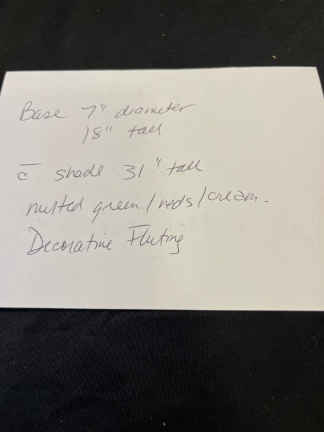 Base 7" diameter
18" tall
c̄ shade 31" tall
green/reds/cream.
Decorative Fluting